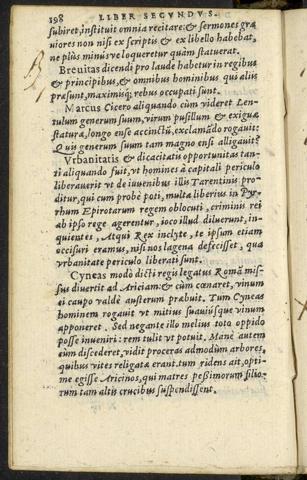 198 LIBER SECVNDVS.
subiret, instituit omnia recitare: & sermones gra
uiores non nisi ex scriptis & ex libello habebat,
ne plus minus ve loqueretur quàm statuerat.
Breuitas dicendi pro laude habetur in regibus
& principibus, & omnibus hominibus qui aliis
præsunt, maximisq; rebus occupati sunt.
Marcus Cicero aliquando cùm videret Len-
tulum generum suum, virum pusillum & exiguæ
staturæ, longo ense accinctũ, exclamãdo rogauit:
Quis generum suum tam magno ensi alligauit?
Vrbanitatis & dicacitatis opportunitas tan-
ti aliquando fuit, vt homines à capitali periculo
liberauerit vt de iuuenibus illis Tarentinis pro-
ditur, qui cum probè poti, multa liberius in Py-
rhum Epirotarum regem obloquuti, criminis rei
ab ipso rege agerentur, ioco illud diluerunt, in-
quientes, Atqui Rex inclyte, te ipsum etiam
occisuri eramus, nisi nos lagena defecisset, qua
vrbanitate periculo liberati sunt.
Cyneas modo dicti regis legatus Romã mis-
sus diuertit ad Ariciam: & cùm cœnaret, vinum
ei caupo valdè austerum præbuit. Tum Cyneas
hominem rogauit vt mitius suauiúsque vinum
apponeret. Sed negante illo melius toto oppido
posse inueniri: rem tulit vt potuit. Manè autem
eùm discederet, vidit proceras admodùm arbores,
quibus vites religatæ erant. tum ridens ait, opti-
mè egisse Aricinos, qui matres pessimorum filio-
rum tam altis crucibus suspendissent.